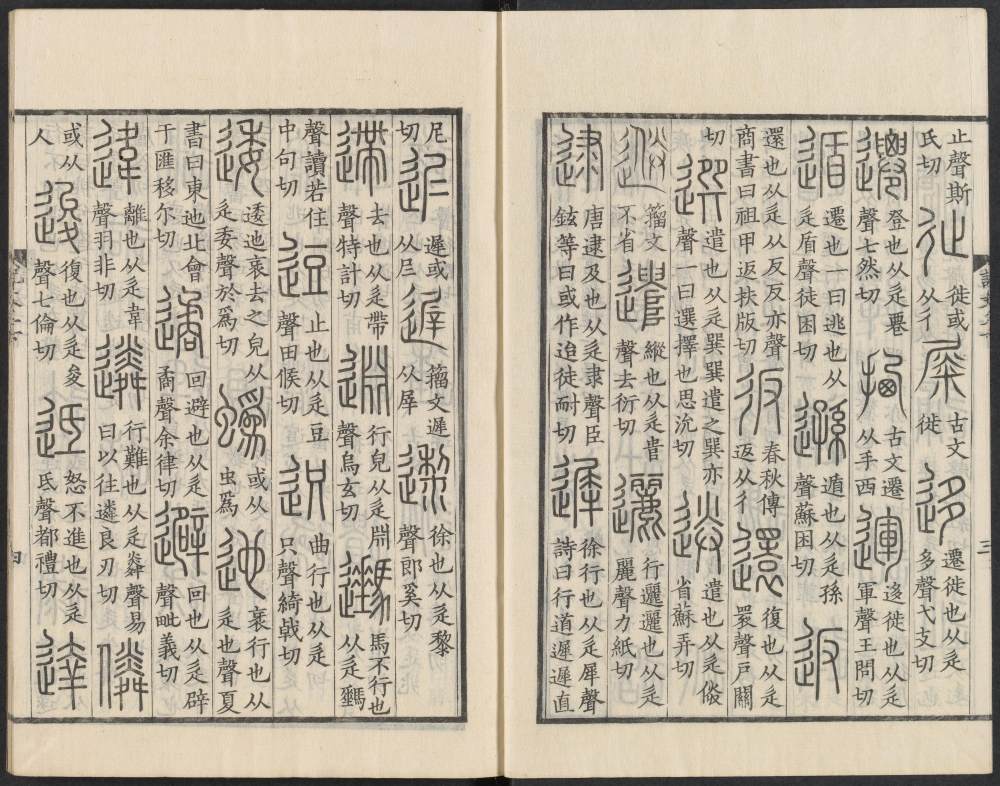 止聲斯氏切 𢓊 徙或从彳 𡲴 古文徙 迻 遷徙也从辵多聲弋支切
遷 登也从辵䙴聲七然切 拪 古文遷从手西 運 迻徙也从辵軍聲王問切
遁 遷也一曰逃也从辵盾聲徒困切 遜 遁也从辵孫聲蘇困切 返
還也从辵从反反亦聲商書曰祖甲返扶版切 彶 春秋傳返从彳 還 復也从辵睘聲戸關
切 選 遣也从辵巽巽遣之巽亦聲一曰選擇也思沇切 送 遣也从辵倂省蘇弄切
籀文不省 遣 縱也从辵𠳋聲去衍切 邐 行邐邐也从辵麗聲力紙切
逮 唐逮及也从辵隶聲臣鉉等曰或作迨徒耐切 遲 徐行也从辵犀聲詩曰行道遲遲直
三
尼切 迡 遲或从𡰥 遟 籀文遲从屖 邌 徐也从辵黎聲郎奚切
遰 去也从辵帶聲特計切 𨖬 行皃从辵𣶒聲烏玄切 馬不行也从辵
聲讀若住中句切 逗 止也从辵豆聲田候切 迟 曲行也从辵只聲綺戟切
逶 逶迆衺去之皃从辵委聲於爲切 蟡 或从虫爲 迆 衺行也从辵也聲夏
書曰東迆止會于匯移尔切 遹 回避也从辵矞聲余律切 避 回也从辵辟聲毗義切
違 離也从辵韋聲羽非切 遴 行難也从辵粦聲易曰以往遴良刃切 僯
或从人 逡 復也从辵夋聲七倫切 𨒛 怒不進也从辵氐聲都禮切 達
四